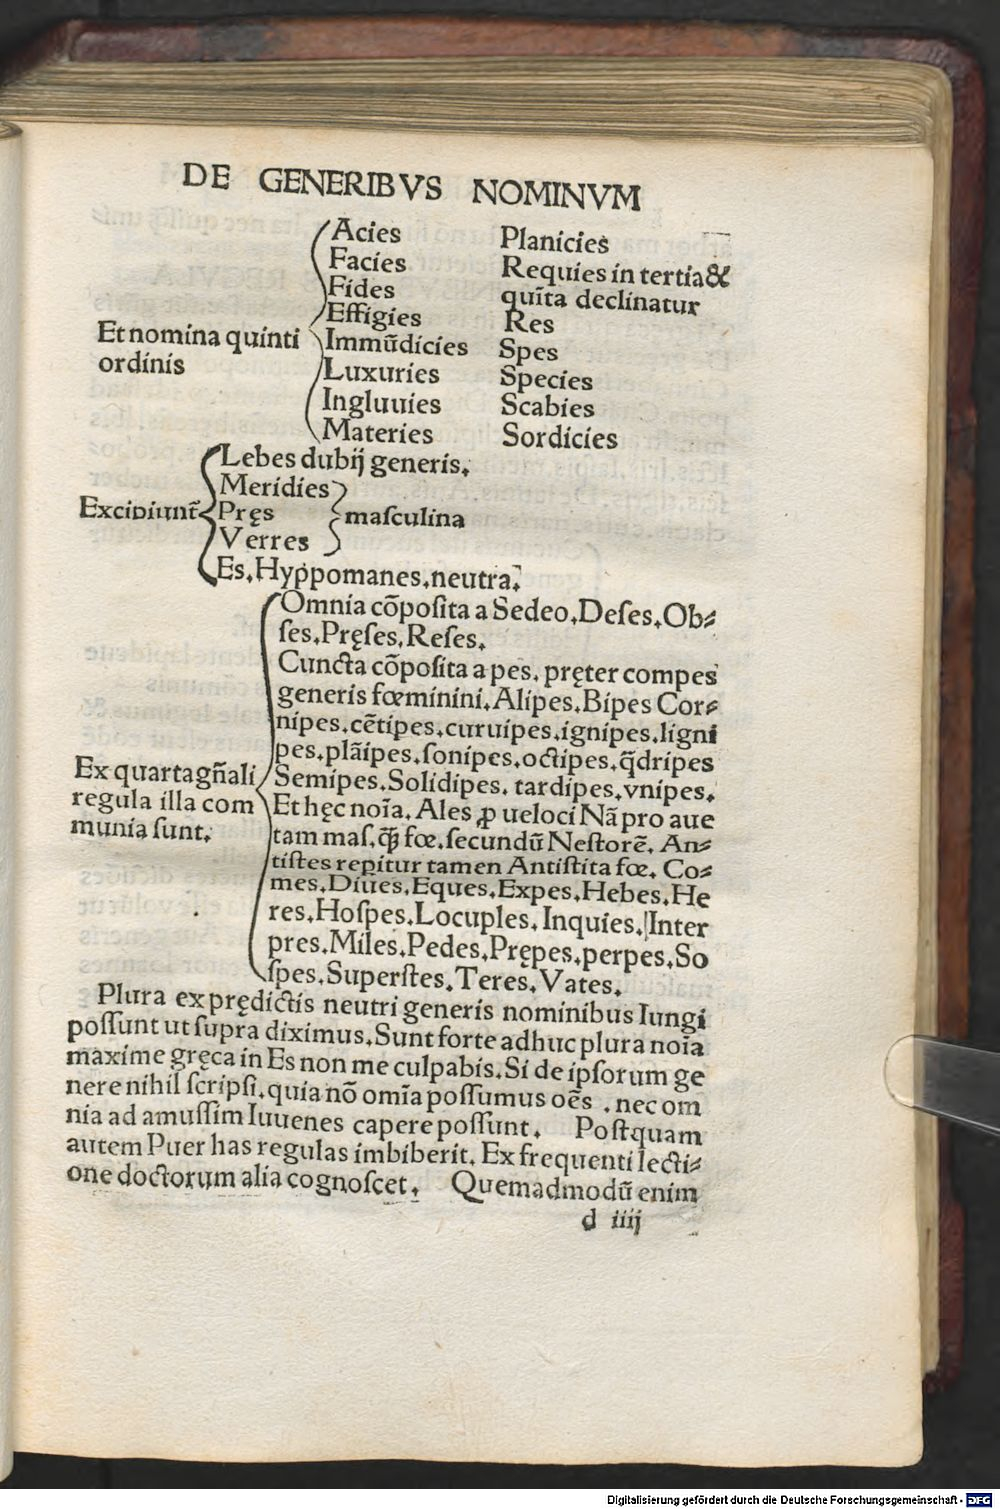 DE GENERIBVS NOMINVM
Et nomina quinti
ordinis
Acies
Facies
Fides
Effigies
Immūdicies
Luxuries
Ingluuies
Materies
Planicies
Requies in tertia &
quīta declinatur
Res
Spes
Species
Scabies
Sordicies
Excipiunt̄
Lebes dubij generis.
Meridies
Pręs
Verres
masculina
Es. Hyppomanes. neutra.
Ex quarta gn̄ali
regula illa com
munia sunt.
Omnia cōposita a Sedeo. Deses. Ob⸗
ses. Pręses. Reses.
Cuncta cōposita a pes. pręter compes
generis fœminini. Alipes. Bipes Cor⸗
nipes. cētipes. curuipes. ignipes. ligni
pes. plāipes. sonipes. octipes. q̄dripes
Semipes. Solidipes. tardipes. vnipes.
Et hęc noīa. Ales ꝓ ueloci Nā pro aue
tam mas. ꝙ̄ fœ. secundū Nestorē. An⸗
tistes repitur tamen Antistita fœ. Co⸗
mes. Diues. Eques. Expes. Hebes. He
res. Hospes. Locuples. Inquies. Inter
pres. Miles. Pedes. Prępes. perpes. So
spes. Superstes. Teres. Vates.
Plura ex prędictis neutri generis nominibus Iungi
possunt ut supra diximus. Sunt forte adhuc plura noīa
maxime gręca in Es non me culpabis. Si de ipsorum ge
nere nihil scripsi. quia nō omīa possumus oēs . nec om
nia ad amussim Iuuenes capere possunt. Postquam
autem Puer has regulas imbiberit. Ex frequenti lecti⸗
one doctorum alia cognoscet. Quemadmodū enim
d iiij
Digitalisierung gefördert durch die Deutsche Forschungsgemeinschaft - DFG